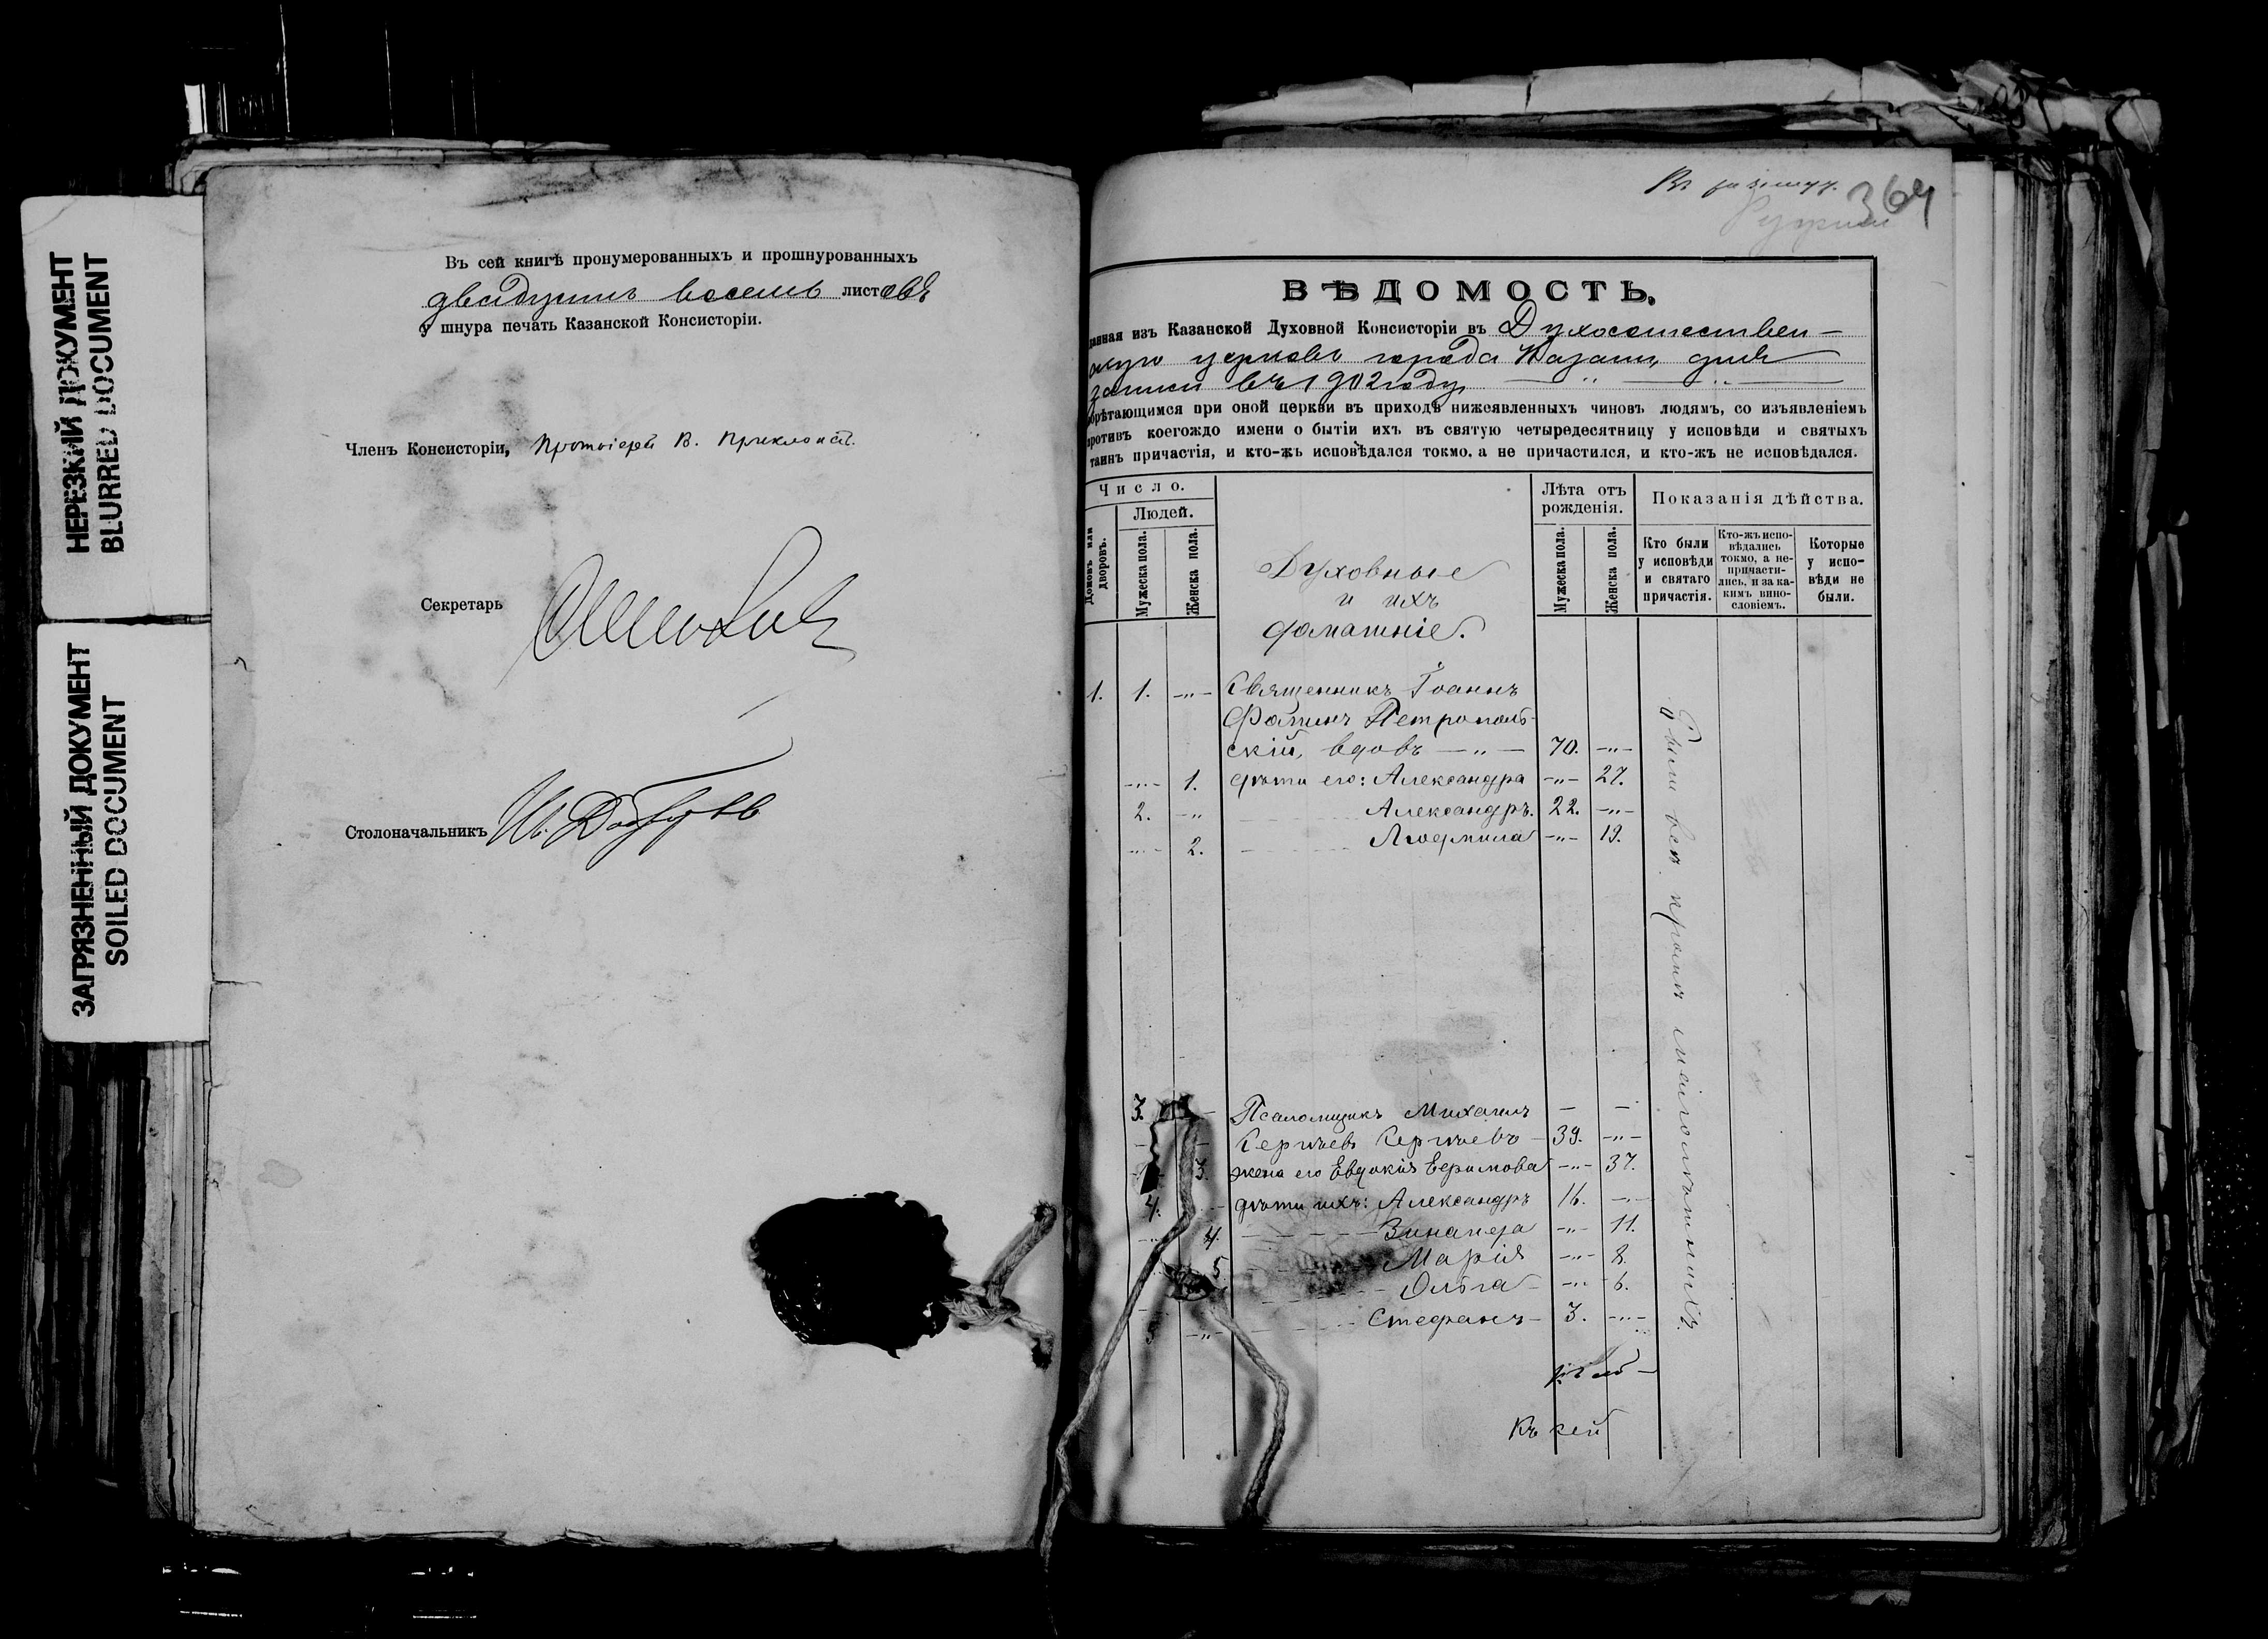 НЕРЕЗКИЙ ДОКУМЕНТ
BLURRED DOCUMENT
ЗАГРЯЗНЕННЫЙ ДОКУМЕНТ
SOILED DOCUMENT
Въ сей книгѣ пронумерованныхъ и прошнурованныхъ
двадцать восемь листовъ
у шнура печать Казанской Консисторіи.
Членъ Консисторіи, Протоіерей В.
Секретарь
Столоначальникъ
364
ВѢДОМОСТЬ,
данная изъ Казанской Духовной Консисторіи въ Духосошествен-
скую церковь города Казани, для
записи въ 1902 году
обрѣтающимся при оной церкви въ приходѣ нижеявленныхъ чиновъ людямъ, со изъявленіемъ
противъ коегождо имени о бытіи ихъ въ святую четыредесятницу у исповѣди и святыхъ
таинъ причастія, и кто-жъ исповѣдался токмо, а не причастился, и кто-жъ не исповѣдался.
Число.
Домовъ или дворовъ.
Людей.
Мужеска пола.
Женска пола.
Духовные
и ихъ
домашніе.
Лѣта отъ
рожденія.
Мужеска пола.
Женска пола.
Показанія дѣйства.
Кто были
у исповѣди
и святаго
причастія.
Кто-жъ испо-
вѣдались
токмо, а не-
причасти-
лись, и за ка-
кимъ вино-
словіемъ.
Которые
у испо-
вѣди не
были.
1. 1. -"- Священникъ Іоаннъ
Фотинъ Петрополь-
скій, вдовъ -"- 70. -"-
-"- 1. дѣти его: Александра -"- 27.
2. -"- Александръ. 22. -"-
-"- 2. Людмила -"- 19.
3. - Псаломщикъ Михаилъ - -
Сергѣевъ Сергѣевъ - 39. -"-
3. жена его Евдокія Ефимова -"- 37.
4. дѣти ихъ: Александръ 16. -"-
-"- 4. Зинаида -"- 11.
5. Марія -"- 8.
Ольга -"- 6.
-"- Стефанъ - 3. -"-
Были всѣ кромѣ малолѣтнихъ
Къ сей